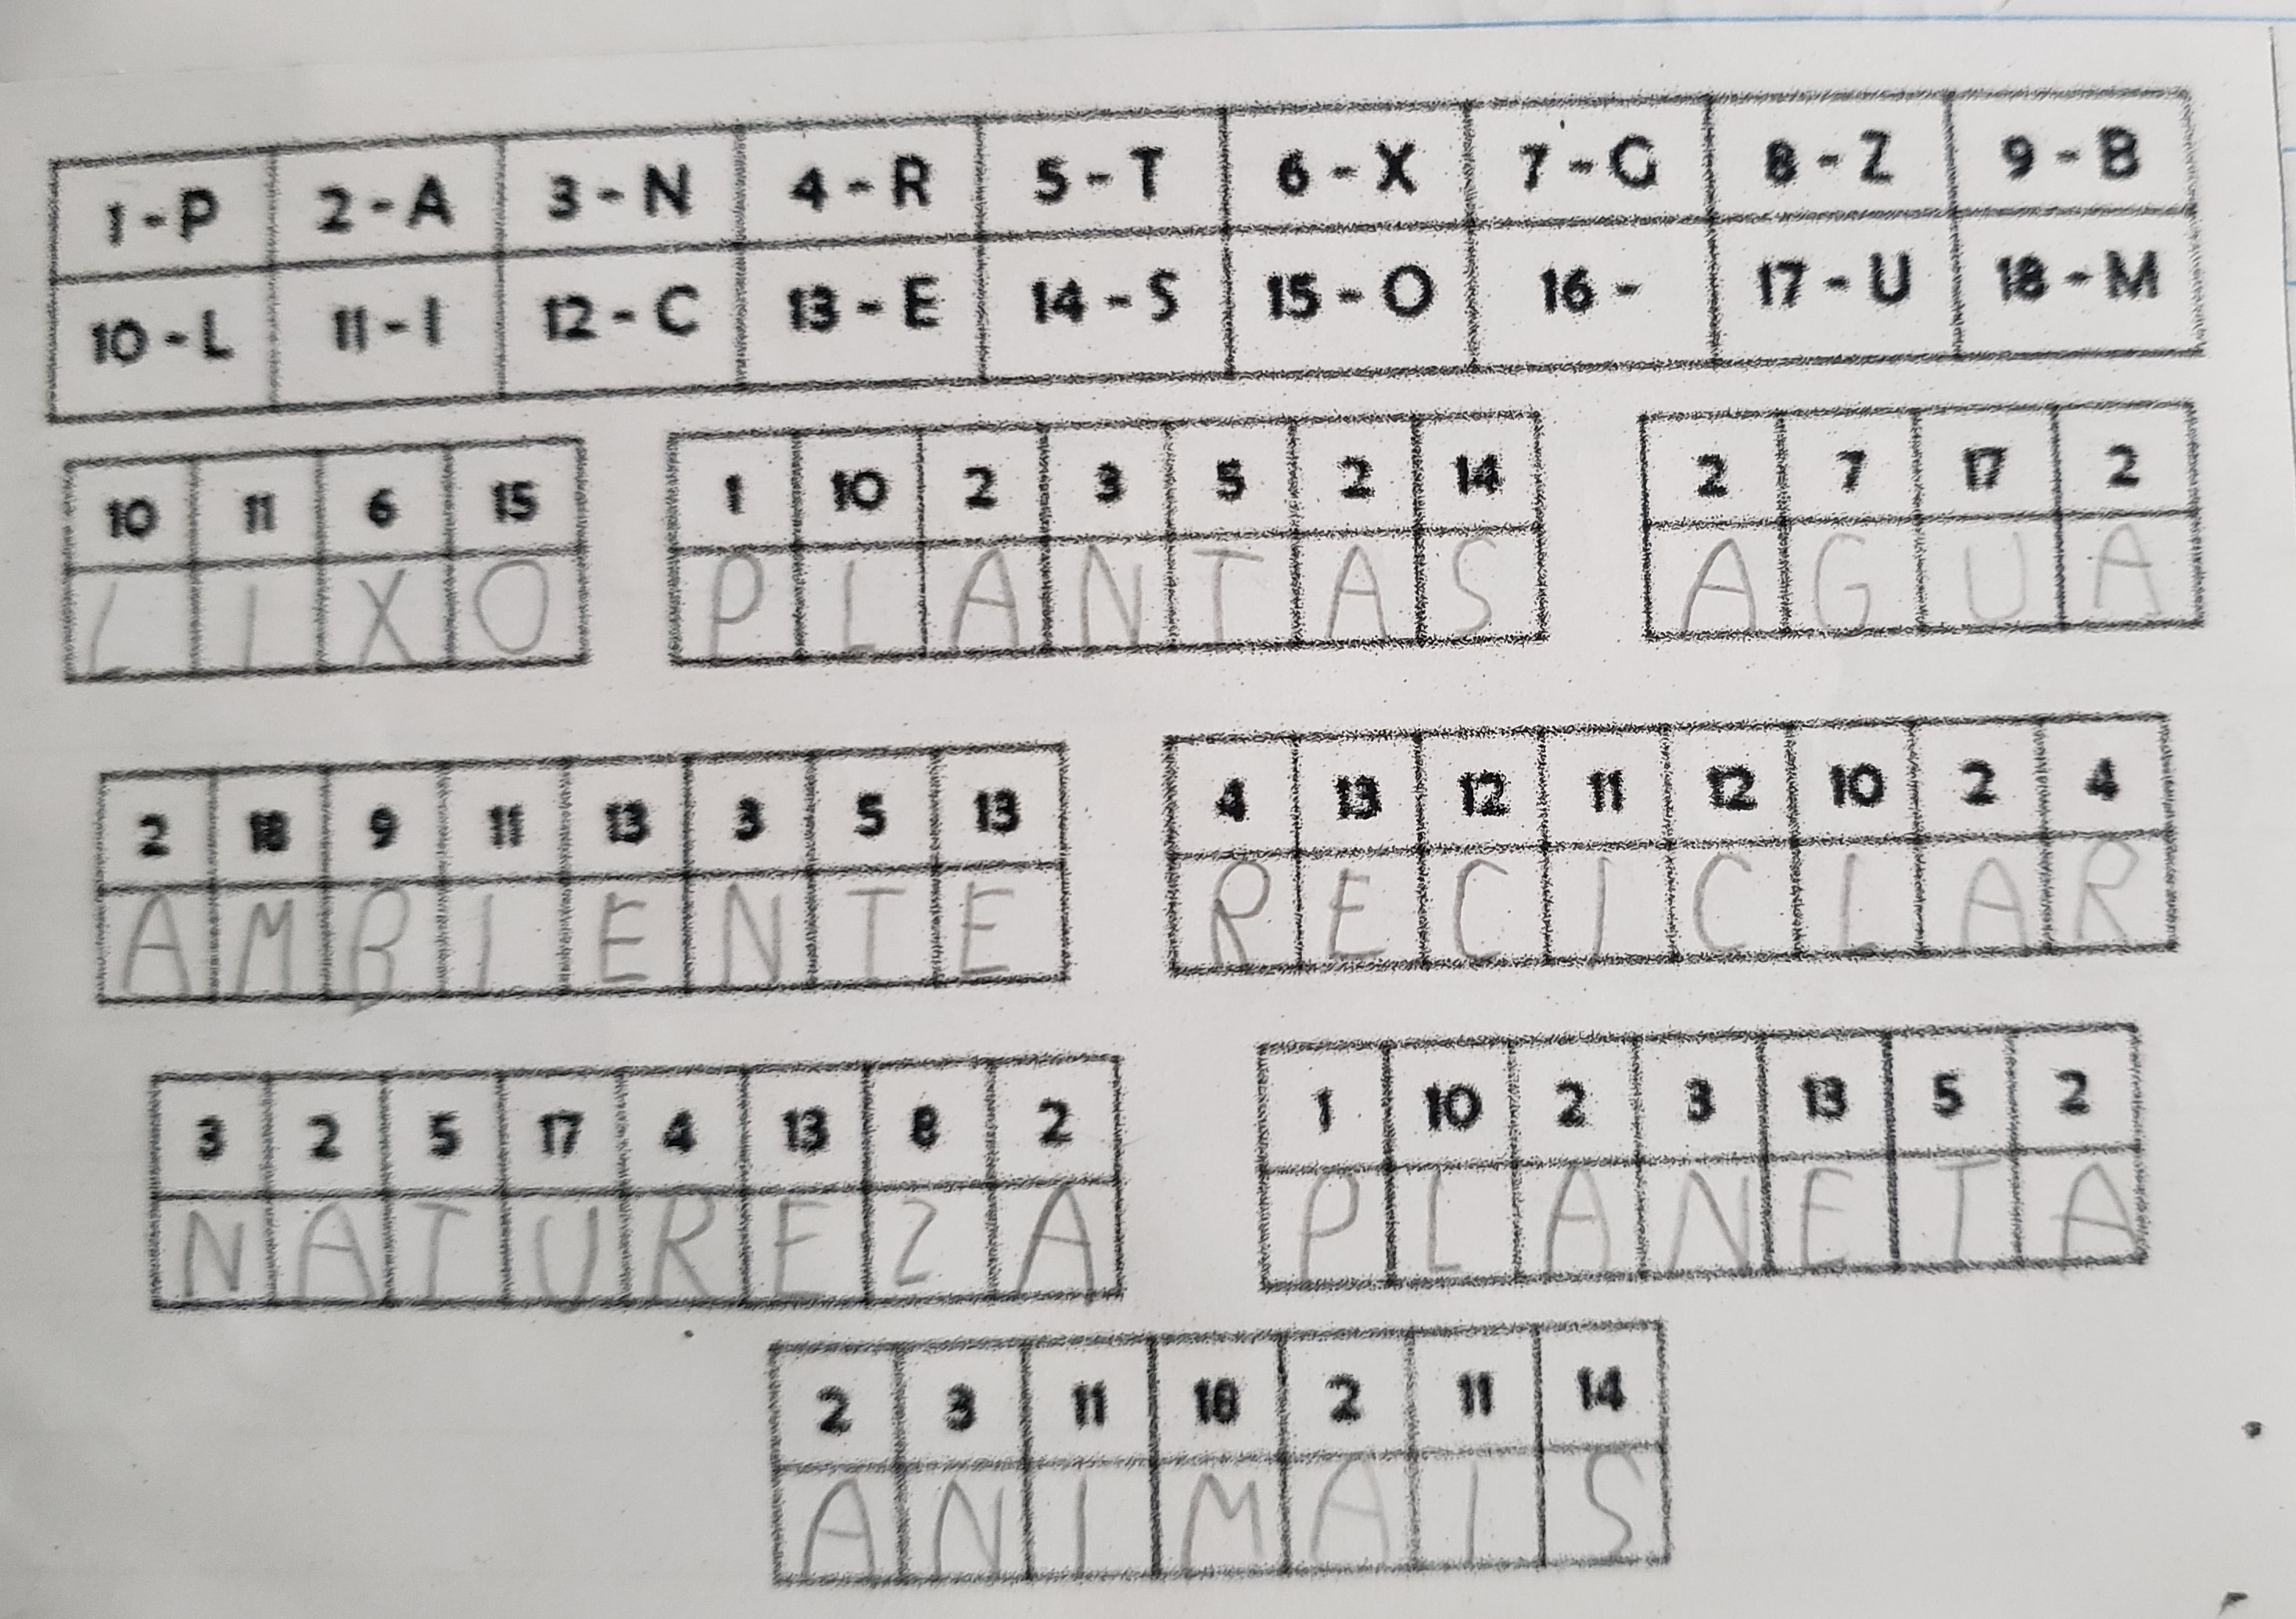 1-P 2-A 3-N 4-R 5-T 6-X 7-G 8-Z 9-B
10-L 11-I 12-C 13-E 14-S 15-O 16- 17-U 18-M
10 11 6 15 1 10 2 3 5 2 14 2 7 17 2
L I X O P L A N T A S A G U A
2 18 9 11 13 3 5 13 4 13 12 11 12 10 2 4
A M B I E N T E R E C I C L A R
3 2 5 17 4 13 8 2 1 10 2 3 13 5 2
N A T U R E Z A P L A N E T A
2 3 11 18 2 11 14
A N I M A I S